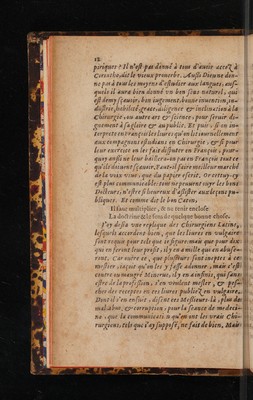 12
piriques? Il n'est pas donné à tous d'avoir accez à
Corinthe, dit le vieux proverbe. Aussi Dieu ne don-
ne pas à tous les moyens d'estudier aux langues, aus-
quels il aura bien donné un bon sens naturel, qui
est demy sçavoir, bon iugement, bonne invention, in-
dustrie, habilité, grace, diligence & inclination à la
Chirurgie, ou autre art & science, pour servir di-
gnement à sa ligne & au public. Et puis, si on in-
terprete en françois les livres qu'on lit iournellement
aux compagnons estudians en Chirurgie, & si pour
leur exercice on les fait disputer en François, pour-
quoy aussi ne leur baillera-on pas en François tout ce
qu'ils doivent sçavoir, tout-
de la voix vive, que du papier escrit. Or cettuy-cy
est plus communicable: tous ne peuvent ouyr les bons
Docteurs, n'estre si heureux d'assister aux leçons pu-
bliques. Et comme dit le bon Caton,
Il faut multiplier, & ne tenir enclose
La doctrine & le sens de quelque bonne chose.
J'ey desia une replique des Chirurgiens Latins,
lesquels accordent bien, que les livres en vulgaire
sont requis pour tels que ie figure: mais que pour dix
qui en feront leur profit, il y en a mille qui en abuse-
ront. Car outre ce, que plusieurs sont ineptes à ce
mestier, iaçoit qu'on les y face adonner, mais c'est
contre ou maugré Minerve, il y en a infinis, qui sans
estre de la profession, s'en veulent mesler, & pes-
cher des receptes en ces livres publiez en vulgaire.
Dont il s'en ensuit, disent ces Messieurs là, plus de
mal abus, & corruption, pour la
ne, que la communication qu'en ont les vrais Chi-
rurgiens, tels que i'ay supposé, ne fait de bien. Mais